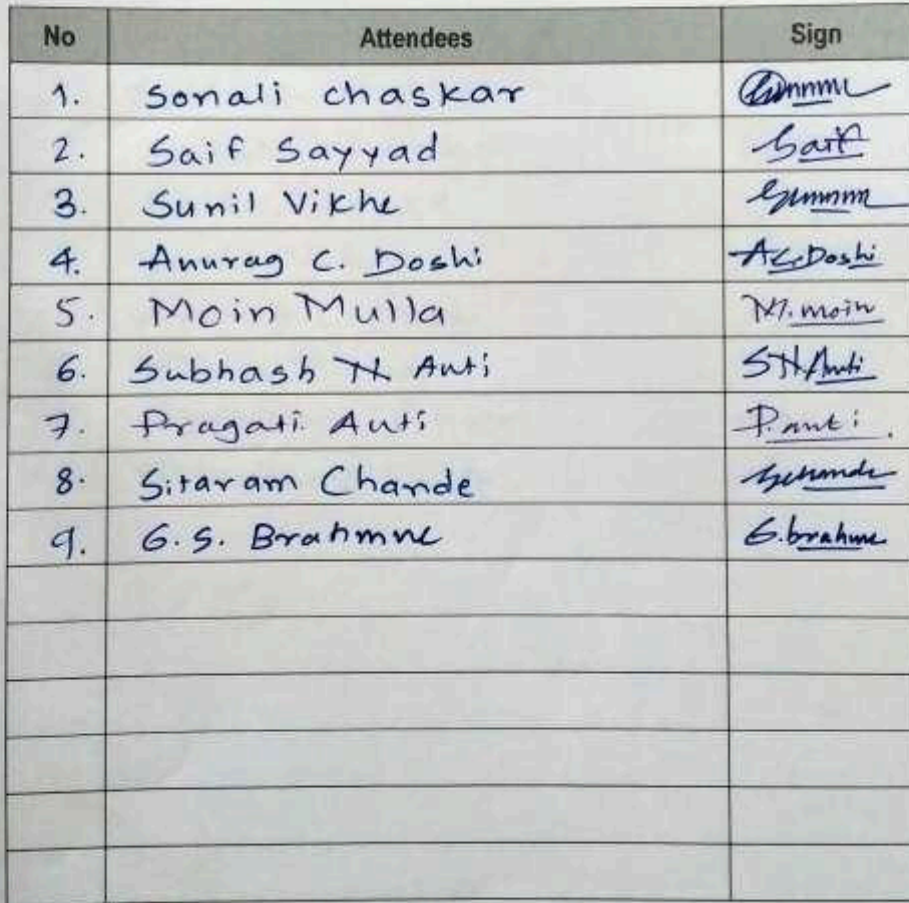 No Attendees Sign
1. Sonali chaskar
2. Saif Sayyad Saif
3. Sunil Vikhe
4. Anurag C. Doshi A.C.Doshi
5. Moin Mulla M.moin
6. Subhash H Auti SHAuti
7. Pragati Auti P.auti.
8. Sitaram Chande
9. G.S. Brahmne G.brahme